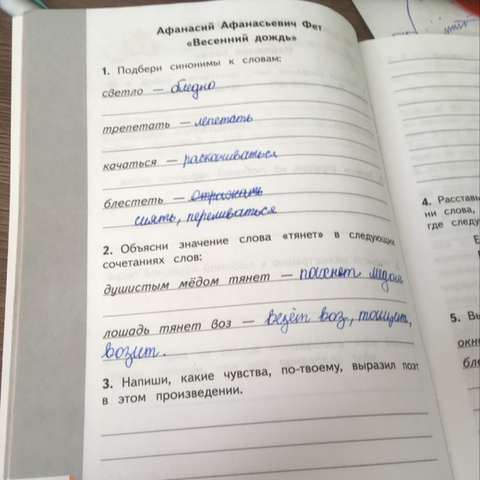 Афанасий Афанасьевич Фет
«Весенний дождь»
1. Подбери синонимы к словам:
светло — бледно
трепетать — лепетать
качаться — раскачиваться
блестеть — отражать
сиять, переливаться
2. Объясни значение слова «тянет» в следующих
сочетаниях слов:
душистым мёдом тянет — пахнет мёдом
лошадь тянет воз — везёт воз, тащит,
возит.
3. Напиши, какие чувства, по-твоему, выразил поэт
в этом произведении.
4. Расставь
ни слова,
где следу
5. Вы
окн
бле